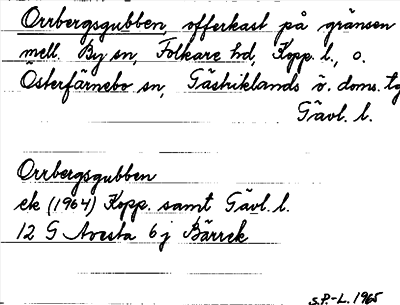 Orrbergsgubben, offerkast på gränsen
mell. By sn, Folkare hd, Kopp. l., o.
Österfärnebo sn, Gästriklands ö. doms. tg
Gävl. l.
Orrbergsgubben
ek (1964) Kopp. samt Gävl. l.
12 G Avesta 6 j Bärrek
S.P-L. 1965